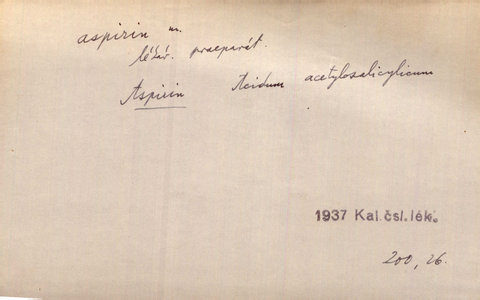 aspirin m.
lékár. praeparát.
Aspirin Acidum acetylosalicylicum
1937 Kal.čsl.lék.
200, 26.